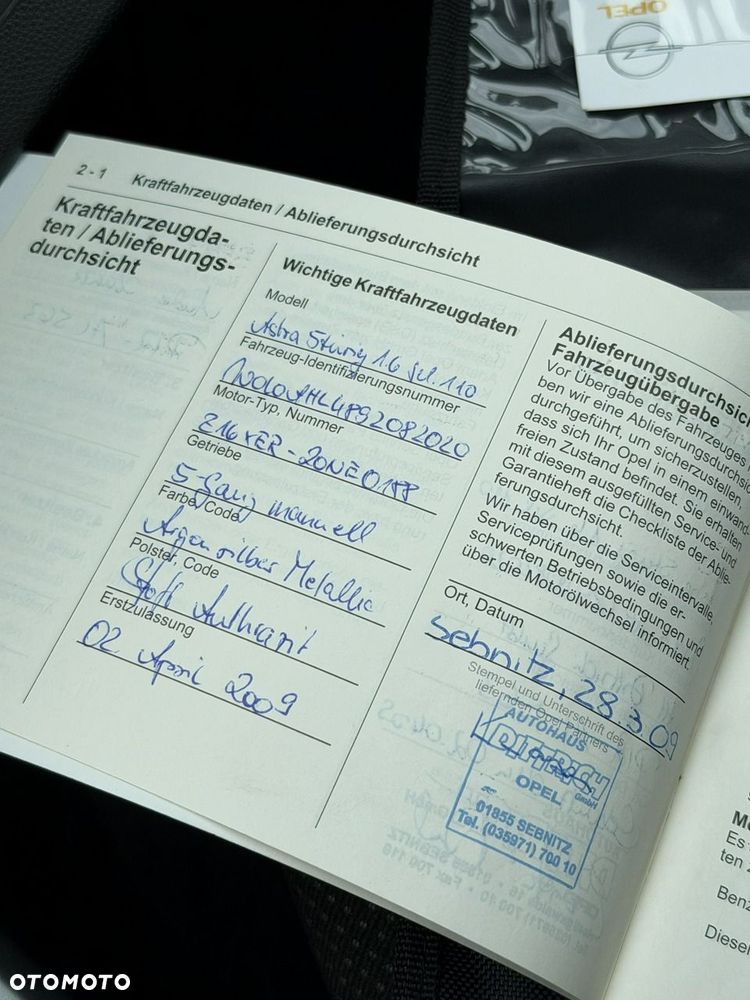 OPEL
2 - 1 Kraftfahrzeugdaten / Ablieferungsdurchsicht
Kraftfahrzeugda-
ten / Ablieferungs-
durchsicht
Wichtige Kraftfahrzeugdaten
Modell
Astra 5türig 1.6 Sel. 110
Fahrzeug-Identifizierungsnummer
W0L0AHL4892082020
Motor-Typ, Nummer
Z16XER - 20NE0188
Getriebe
5-Gang manuell
Farbe, Code
Argonsilber Metallic
Polster, Code
Stoff Anthrazit
Erstzulassung
02. April 2009
Ablieferungsdurchsich
Fahrzeugübergabe
Vor Übergabe des Fahrzeuges
ben wir eine Ablieferungsdurchsic
durchgeführt, um sicherzustellen,
dass sich Ihr Opel in einem einwand-
freien Zustand befindet. Sie erhalten
mit diesem ausgefüllten Service- und
Garantieheft die Checkliste der Ablie-
ferungsdurchsicht.
Wir haben über die Serviceintervalle,
Serviceprüfungen sowie die er-
schwerten Betriebsbedingungen und
über die Motorölwechsel informiert.
Ort, Datum
Sebnitz, 28.3.09
Stempel und Unterschrift des
liefernden Opel Partners
AUTOHAUS
DITTRICH
GmbH
OPEL
01855 SEBNITZ
Tel. (035971) 700 10
Es
ten
Benz
Diesel
OTOMOTO